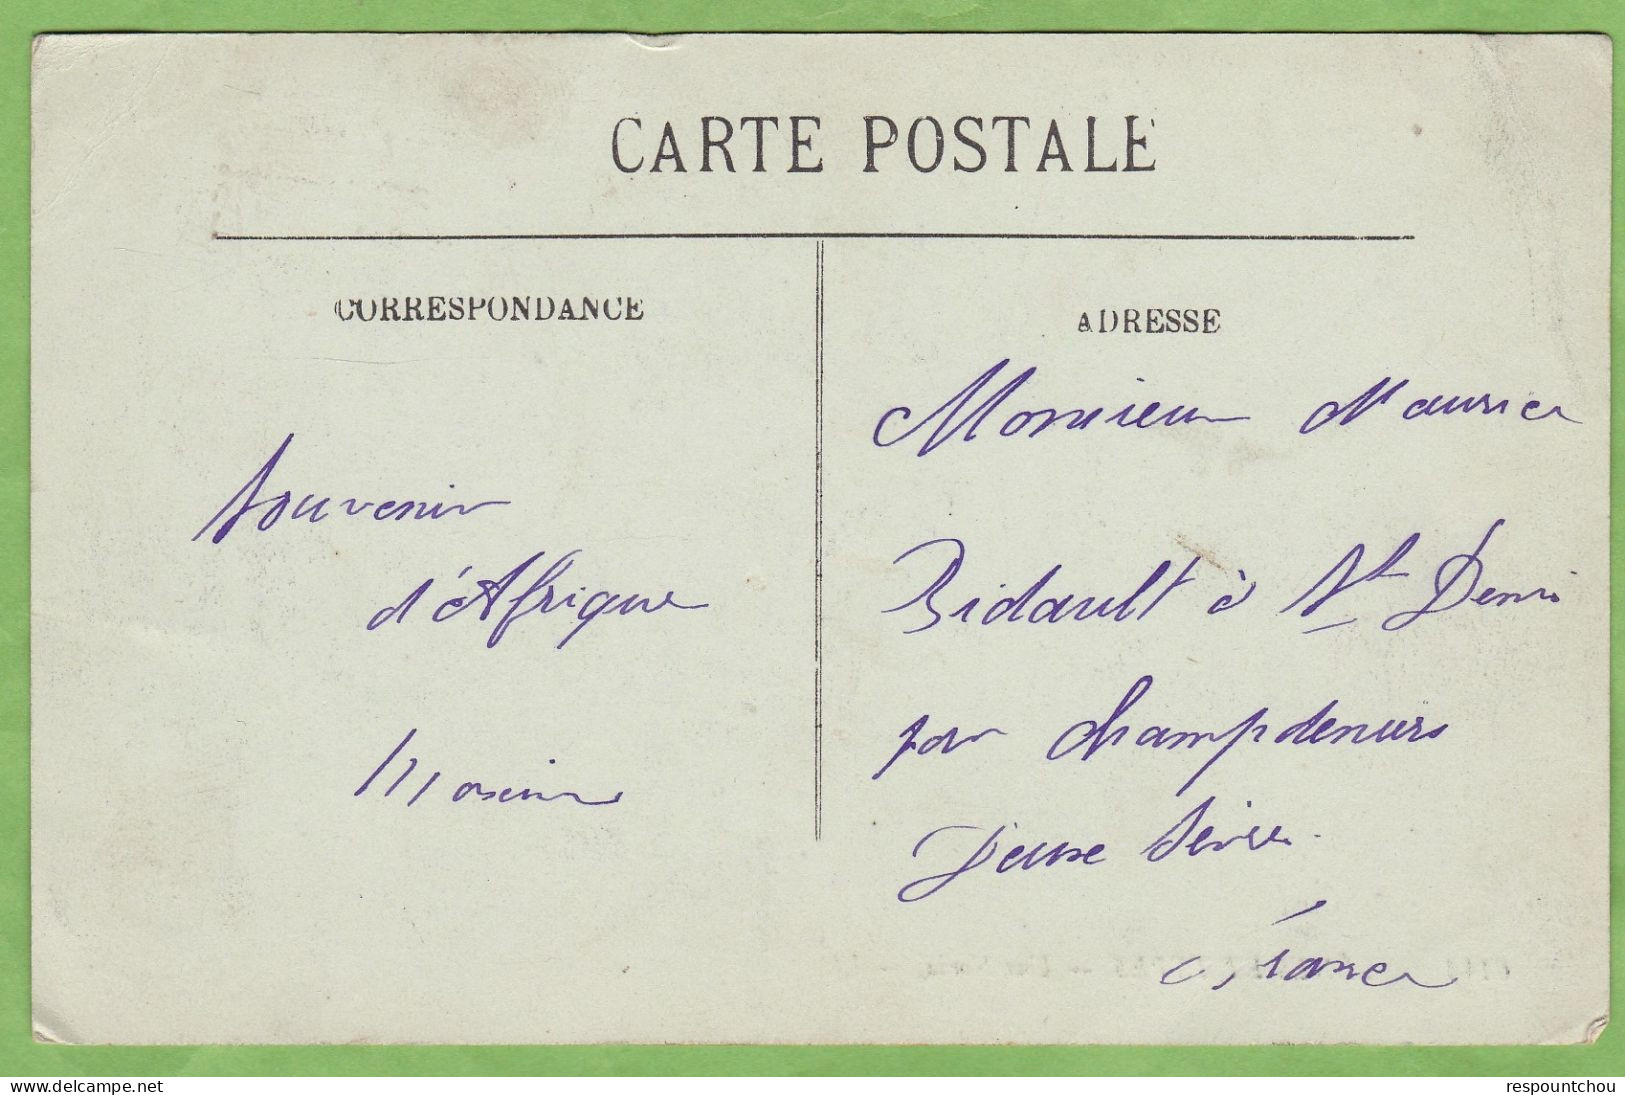 CARTE POSTALE
CORRESPONDANCE
Souvenir
d'Afrique
ADRESSE
Monsieur Maurice
Bidault à St Denis
par Champdeniers
Deux Sèvres
France
www.delcampe.net
respountchou